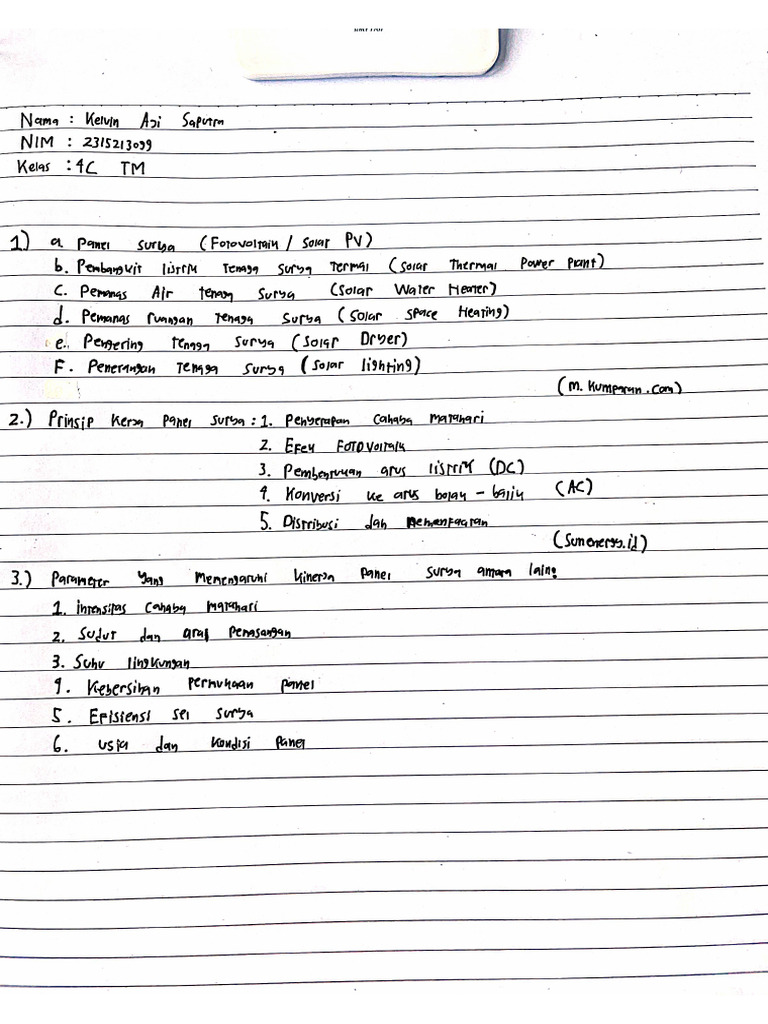 Nama : Kelvin Aji Saputra
NIM : 2315213099
Kelas : 4C TM
1) a. Panel surya (Fotovoltaik / Solar PV)
b. Pembangkit listrik tenaga surya termal (Solar Thermal Power Plant)
c. Pemanas Air tenaga surya (Solar Water Heater)
d. Pemanas ruangan tenaga surya (Solar space Heating)
e. Pengering tenaga surya (Solar Dryer)
F. Penerangan tenaga surya (Solar lighting)
(m.kumparan.com)
2.) Prinsip kerja panel surya : 1. Penyerapan cahaya matahari
2. Efek FOTOVoltaik
3. Pembentukan arus listrik (DC)
4. Konversi ke arus bolak-balik (AC)
5. Distribusi dan pemanfaatan
(Sunenergy.id)
3.) Parameter yang memengaruhi kinerja panel surya antara lain:
1. intensitas cahaya matahari
2. Sudut dan arah Pemasangan
3. Suhu lingkungan
4. Kebersihan permukaan panel
5. Efisiensi sel surya
6. usia dan kondisi panel